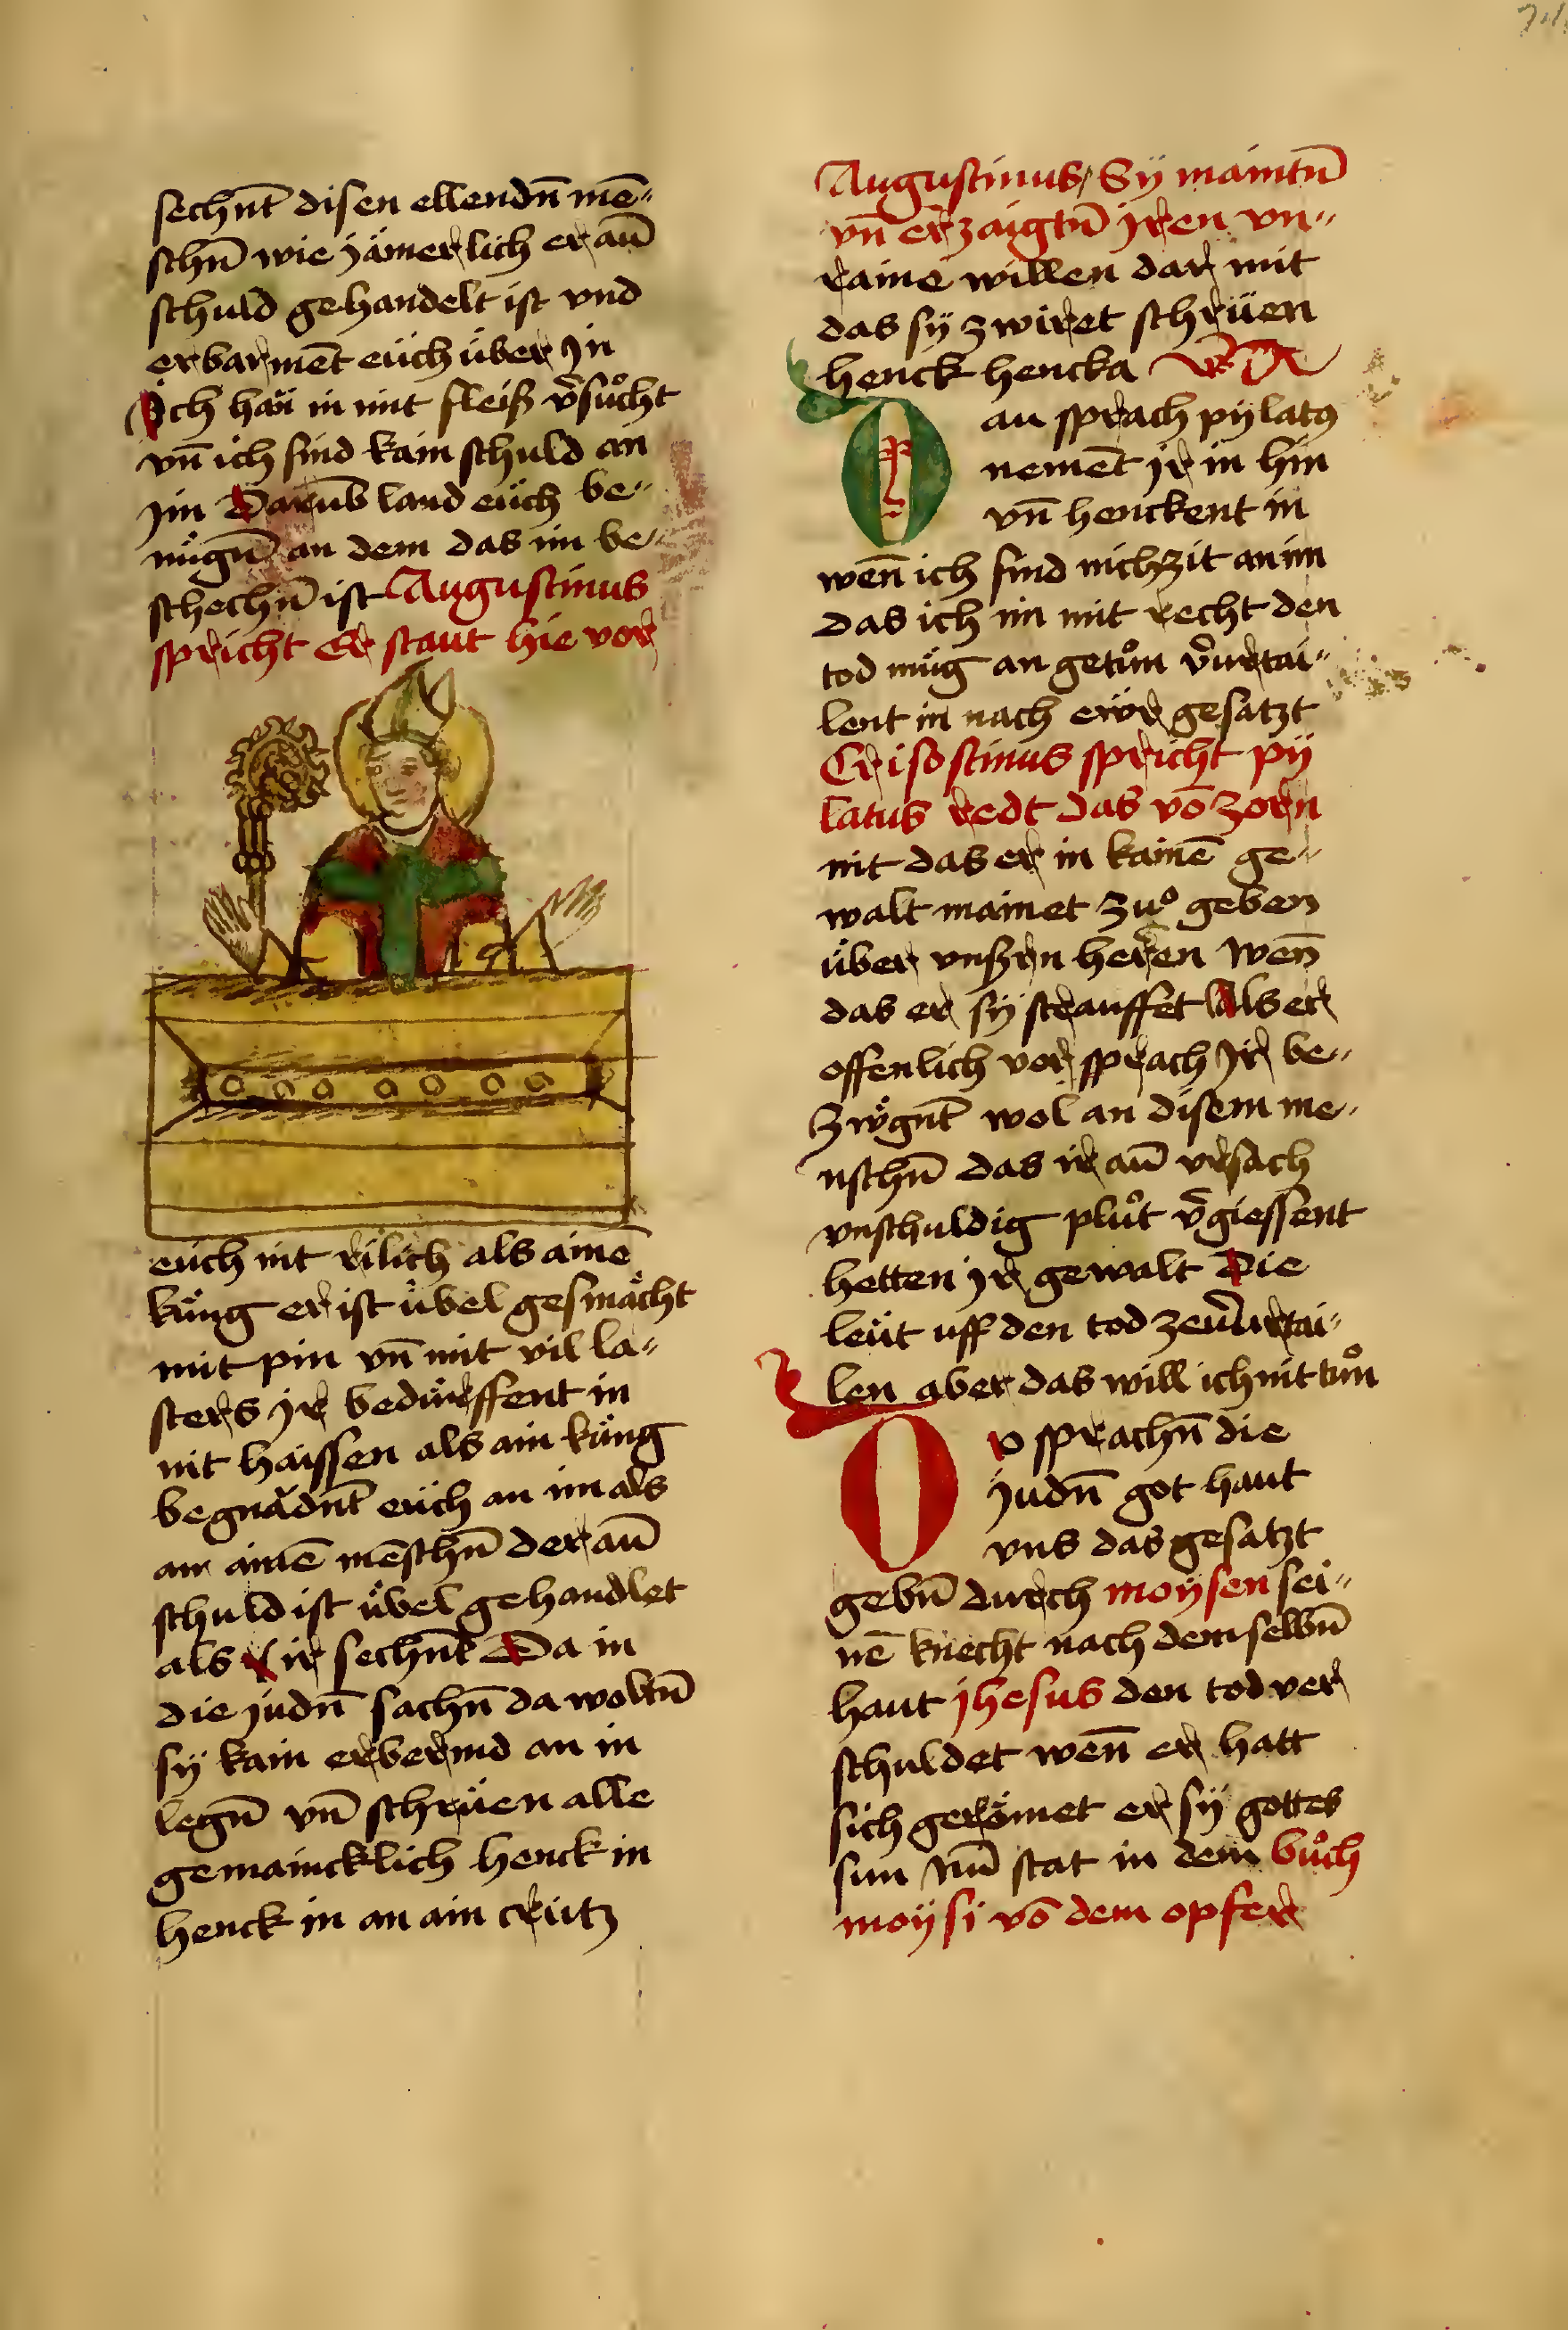 74
sechn̄t disen ellendn̄ mē-
schn̄ wie jämerlich er aū
schuld gehandelt ist vnd
erbarmēt eüch über In
Ich han in mit fleiß v̄sůcht
vn̄ ich find kain schuld an
jm Darūb land eüch be-
nu̇gn̄ an dem das im be-
schechn̄ ist Augustinus
spricht Er staut hie vor
eüch nit rilich als ainē
küng er ist übel gesmächt
mit pin vn̄ mit vil la-
sters jr bedürffent in
nit haissen als ain küng
begnädn̄t eüch an im als
an ainē mēschn̄ der aū
schuld ist übel gehandlet
als ir sechn̄t Da in
die judn̄ sachn̄ da woltn̄
sÿ kain erbermd an in
legn̄ vn̄ schrüen alle
gemaincklich henck in
henck in an ain crütz
Augustinus Sÿ maintn̄
vn̄ erzaigtn̄ jren vn-
raine willen dar mit
das sÿ zwiret schrüen
henck hencka
D au sprach pÿlatꝯ
nemēt jr in hin
vn̄ henckent in
wen̄ ich find nichzit an im
das ich im mit recht den
tod müg an getůn v̄urtai-
lent in nach ewr gesatzt
Crisostimus spricht pÿ
latus redt das vō zorn
nit das er in kainē ge-
walt mainet zuͦ geben
über vnßrn heren Wen̄
das er sÿ strauffet Als er
offenlich vor sprach Ir be-
zwgn̄t wol an disem me-
nschn̄ das ir aū vrsach
vnschuldig plůt v̄giessent
hetten jr gewalt Die
leüt uff den tod zev̄urtai-
len aber das will ich nit tůn
D o sprachn̄ die
judn̄ got haut
vns das gesatzt
gebn̄ durch moÿsen sei-
nē knecht nach dem selbn̄
haut jhesus den tod ver
schuldet wen̄ er hatt
sich gerömet er sÿ gottes
sun Nū stat in dem bůch
moÿsi vō dem opfer